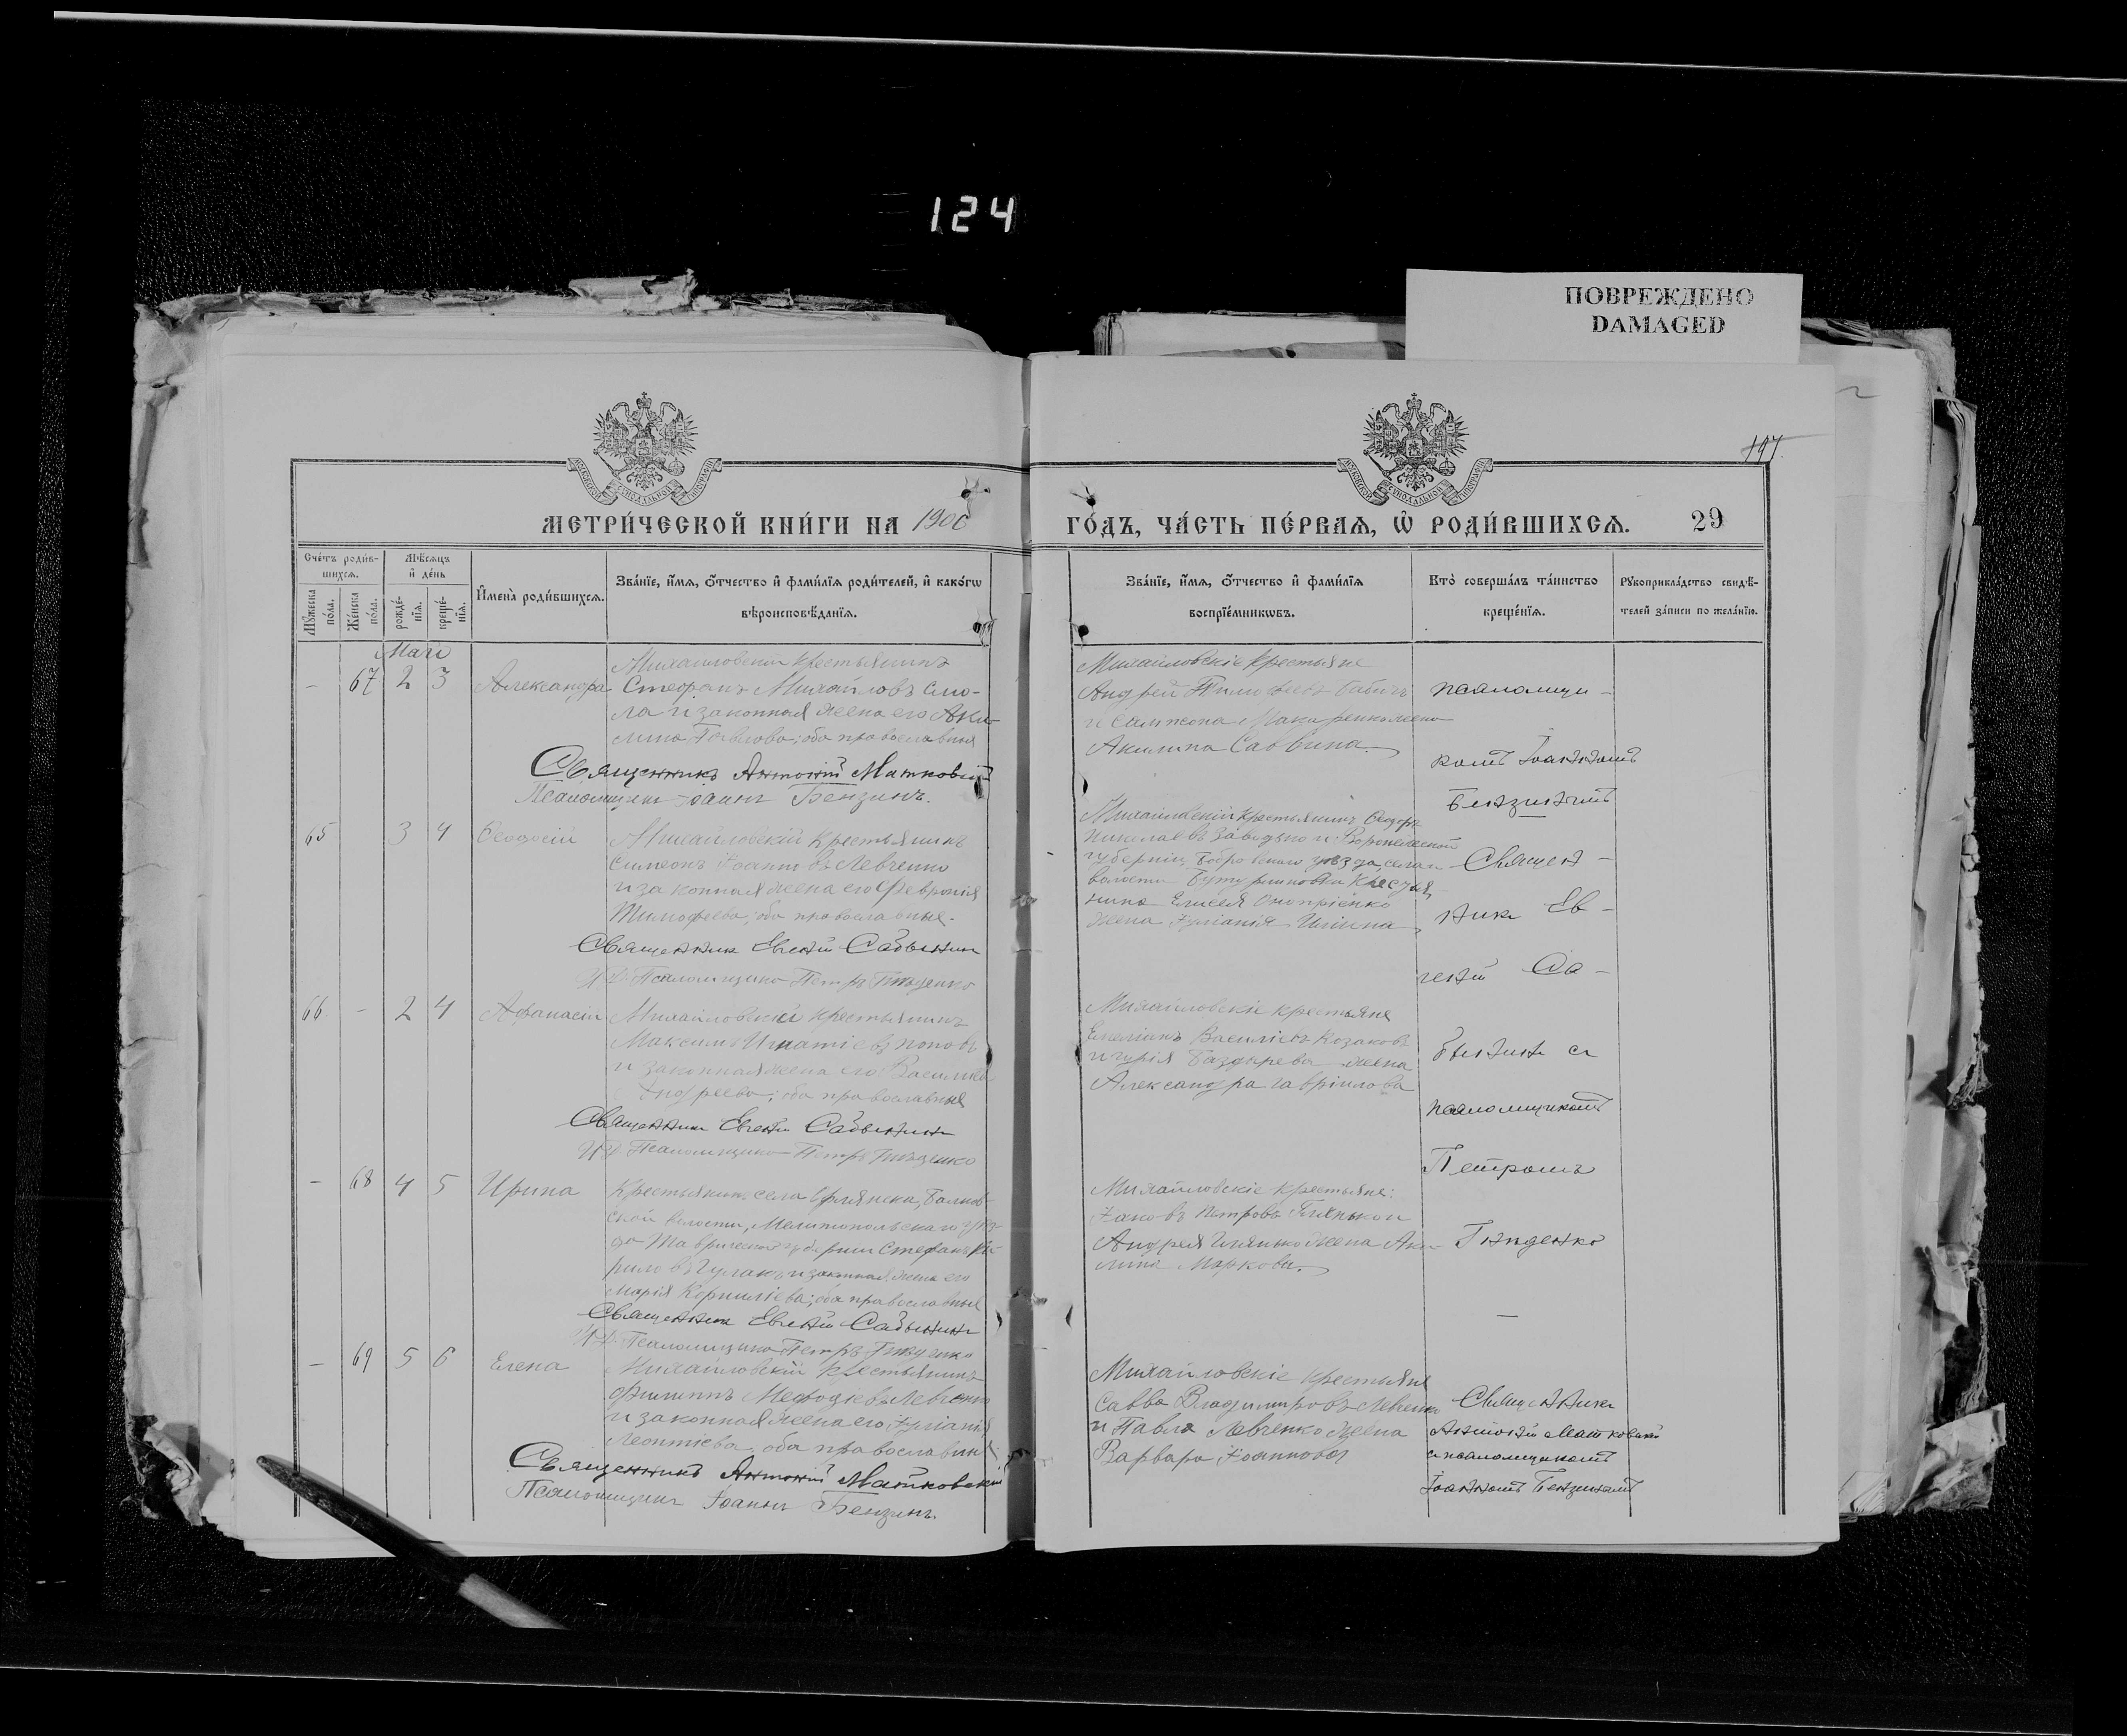 124
ПОВРЕЖДЕНО
DAMAGED
МОСКОВСКОЙ СѴНОДАЛЬНОЙ ТИПОГРАФІИ
МОСКОВСКОЙ СѴНОДАЛЬНОЙ ТИПОГРАФІИ
147.
МЕТРИ́ЧЕСКОЙ КНИ́ГИ НА 1900
ГО́ДЪ, ЧА́СТЬ ПЕ́РВАѦ, Ѿ РОДИ́ВШИХСѦ. 29
Сче́тъ роди́в-
шихсѧ.
Мꙋ́жеска по́ла.
Же́нска по́ла.
Мѣ́сѧцъ
и҆ де́нь
рожде́-
нїѧ.
креще́-
нїѧ.
И҆мена̀ роди́вшихсѧ.
Зва́нїе, и҆́мѧ, ѻ҆́тчество и҆ фами́лїѧ роди́телей, и҆ како́гѡ
вѣ́роисповѣ́данїѧ.
Зва́нїе, и҆́мѧ, ѻ҆́тчество и҆ фами́лїѧ
воспрїе́мникѡвъ.
Кто̀ соверша́лъ та́инство
креще́нїѧ.
Рꙋкоприкла́дство свидѣ́-
телей за́писи по жела́нїю.
Май
- 67 2 3 Александра
Михайловскій крестьянинъ
Стефанъ Михайловъ Смо-
ла и законная жена его Аки-
лина Павлова; оба православные
Священникъ Антоній Матковскій
Псаломщикъ Іоаннъ Бензинъ.
Михайловскіе крестьяне
Андрей Тимофеевъ Бабичъ
и Сампсона Макаренко жена
Акилина Саввина.
псаломщи-
комъ Іоанномъ
Бензинымъ
65 3 4 Феодосій
Михайловскій крестьянинъ
Симеонъ Іоанновъ Левченко
и законная жена его Февронія
Тимофеева; оба православные.
Священникъ Евгеній Сабынинъ
И. д. Псаломщика Петръ Гнѣденко
Михайловскій крестьянинъ Феодоръ
Николаевъ и Воронежской
губерніи Бобровскаго уѣзда, села и
волости Бутурлиновки крестья-
нина Елисея Оноприенко
жена Іуліанія Ильина
Священ-
никъ Ев-
геній Са-
бынинъ съ
псаломщикомъ
Петромъ
Гнѣденко
66 - 2 4 Афанасій
Михайловскій крестьянинъ
Максимъ Игнатіевъ Поповъ
и законная жена его Василиса
Андреева; оба православные
Священникъ Евгеній Сабынинъ
И. д. Псаломщика Петръ Гнѣденко
Михайловскіе крестьяне
Емеліанъ Василіевъ Козаковъ
и Гурія Баздырева жена
Александра Гавріилова
- 68 4 5 Ирина
Крестьянинъ села Балков-
ской волости, Мелитопольскаго уѣз-
да Таврической губерніи Стефанъ Ки-
риловъ и законная жена его
Марія Корниліева; оба православные
Священникъ Евгеній Сабынинъ
И. д. Псаломщика Петръ Гнѣденко
Михайловскіе крестьяне:
Іаковъ Петровъ и
Андрея жена Аки-
лина Маркова.
—
- 69 5 6 Елена
Михайловскій крестьянинъ
Филиппъ Мефодіевъ Левченко
и законная жена его Іуліанія
Леонтіева, оба православные.
Священникъ Антоній Матковскій
Псаломщикъ Іоаннъ Бензинъ.
Михайловскіе крестьяне
Савва Владимировъ Левченко
и Павла Левченко жена
Варвара Іоаннова
Священникъ
Антоній Матковскій
съ псаломщикомъ
Іоанномъ Бензинымъ